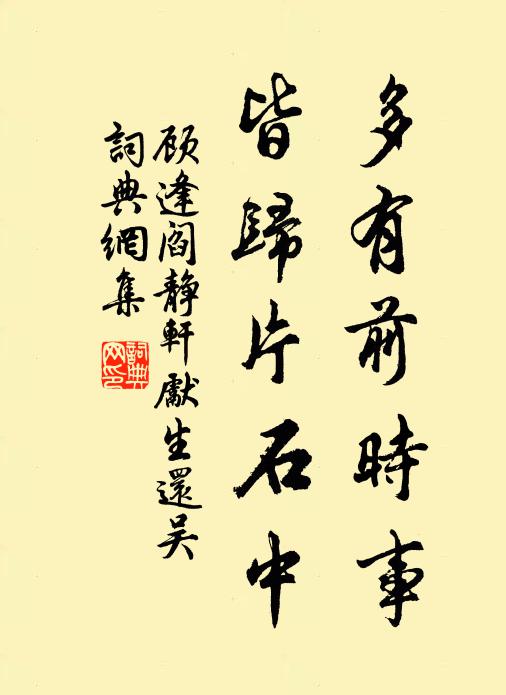 多有前時事
皆歸片石中
顾逢阎静軒獻生還吴
詞典網集
詞典
网印